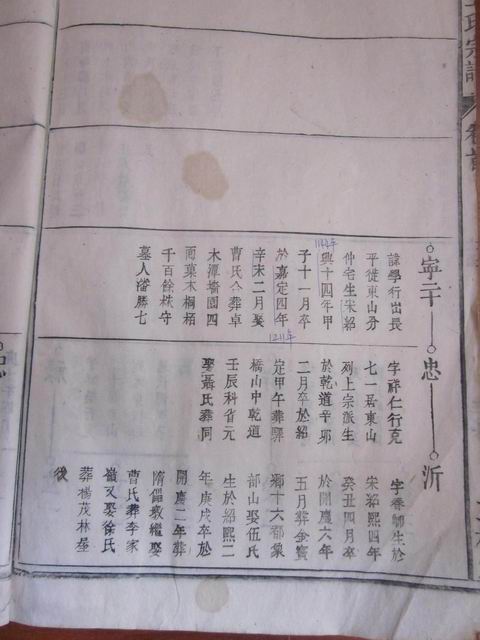 氏宗譜
卷首
寧二十 忠 沂
諱學行出長
平從東山分
仲宅生宋紹
興十四年甲
子十一月卒
於嘉定四年
辛未二月娶
曹氏合葬卓
木潭墙園四
面菓木桐栢
千百餘株守
墓人潘勝七
1144年
1211年
字祥仁行克
七一居東山
列上宗派生
於乾道辛卯
二月卒於紹
定甲午葬驛
橋山中乾道
壬辰科省元
娶聶氏葬同
字春卿生於
宋紹熙四年
癸丑四月卒
於開慶六年
五月葬金寳
鄉十六都象
部山娶伍氏
生於紹熙二
年庚戌卒於
開慶二年葬
隋儒敖繼娶
曹氏葬李家
嶺又娶徐氏
葬楊茂林屋
後